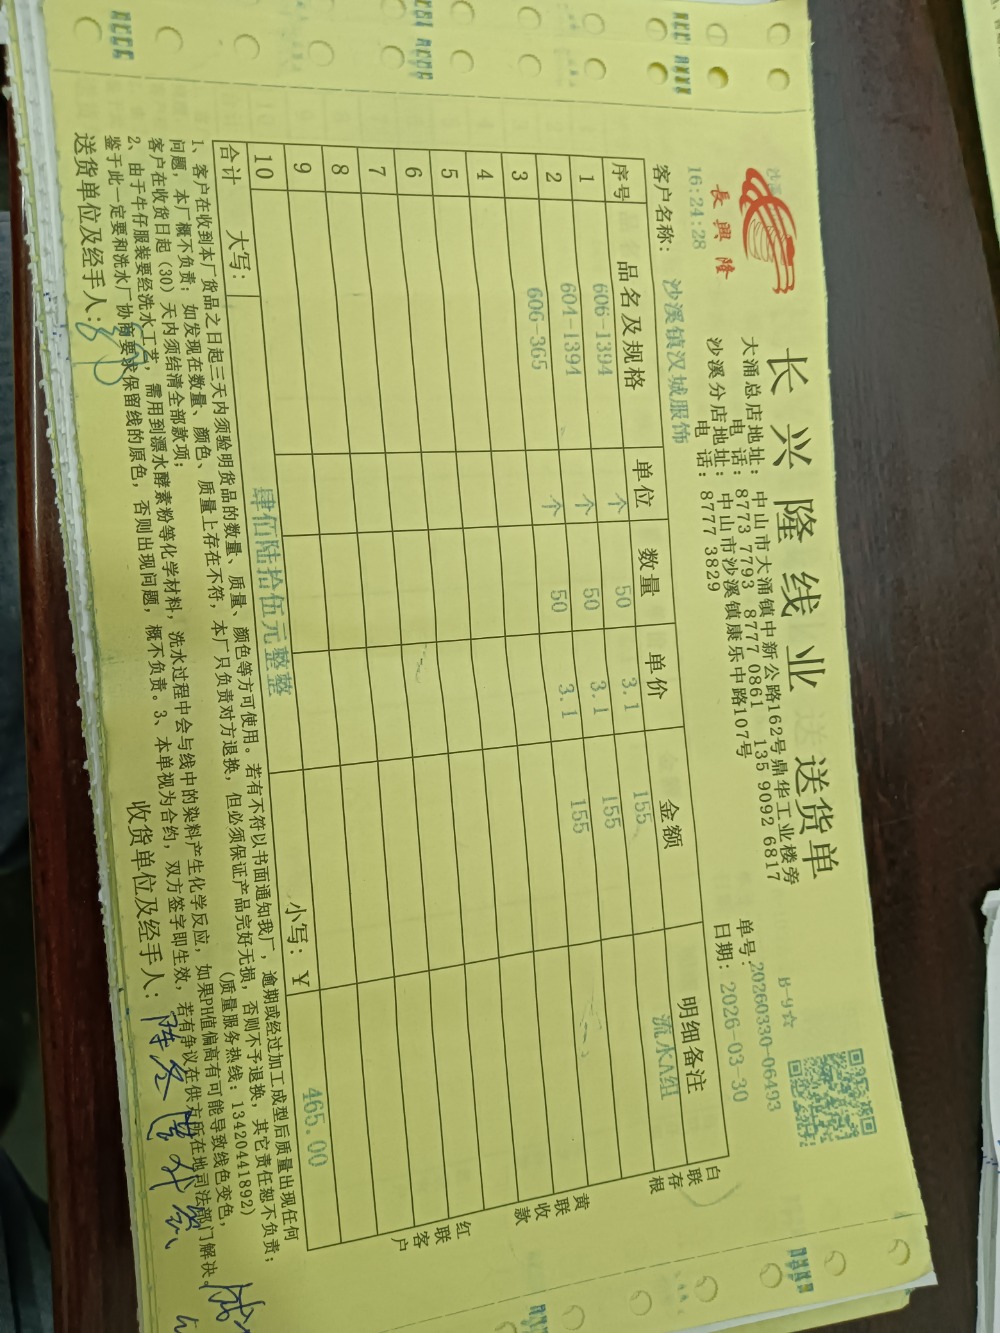 長興隆
长兴隆线业 送货单
B-9☆
大涌总店地址: 中山市大涌镇中新公路162号鼎华工业楼旁
电 话: 8773 7793 8777 0861 135 9092 6817
沙溪分店地址: 中山市沙溪镇康乐中路107号
电 话: 8777 3829
单号: 20260330-06493
16:24:28
日期: 2026-03-30
客户名称: 沙溪镇汉城服饰
序号 品名及规格 单位 数量 单价 金额 明细备注
1 606-1394 个 50 3.1 155 流水A组
2 604-1394 个 50 3.1 155
3 606-365 个 50 3.1 155
4
5
6
7
8
9
10
合计 大写: 肆佰陆拾伍元整整 小写: ¥ 465.00
白联存根
黄联收款
红联客户
1、客户在收到本厂货品之日起三天内须验明货品的数量、质量、颜色等方可使用。若有不符以书面通知我厂，逾期或经过加工成型后质量出现任何
问题，本厂概不负责；如发现在数量、颜色、质量上存在不符，本厂只负责对方退换，但必须保证产品完好无损，否则不予退换，其它责任恕不负责；
客户在收货日起（30）天内须结清全部款项； （质量服务热线：13420441892）
2、由于牛仔服装要经洗水工艺，需用到漂水酵素粉等化学材料，洗水过程中会与线中的染料产生化学反应，如果PH值偏高有可能导致线色变色，
鉴于此一定要和洗水厂协商要求保留线的原色，否则出现问题，概不负责。3、本单视为合约，双方签字即生效，若有争议在供方所在地司法部门解决。
送货单位及经手人: 收货单位及经手人: